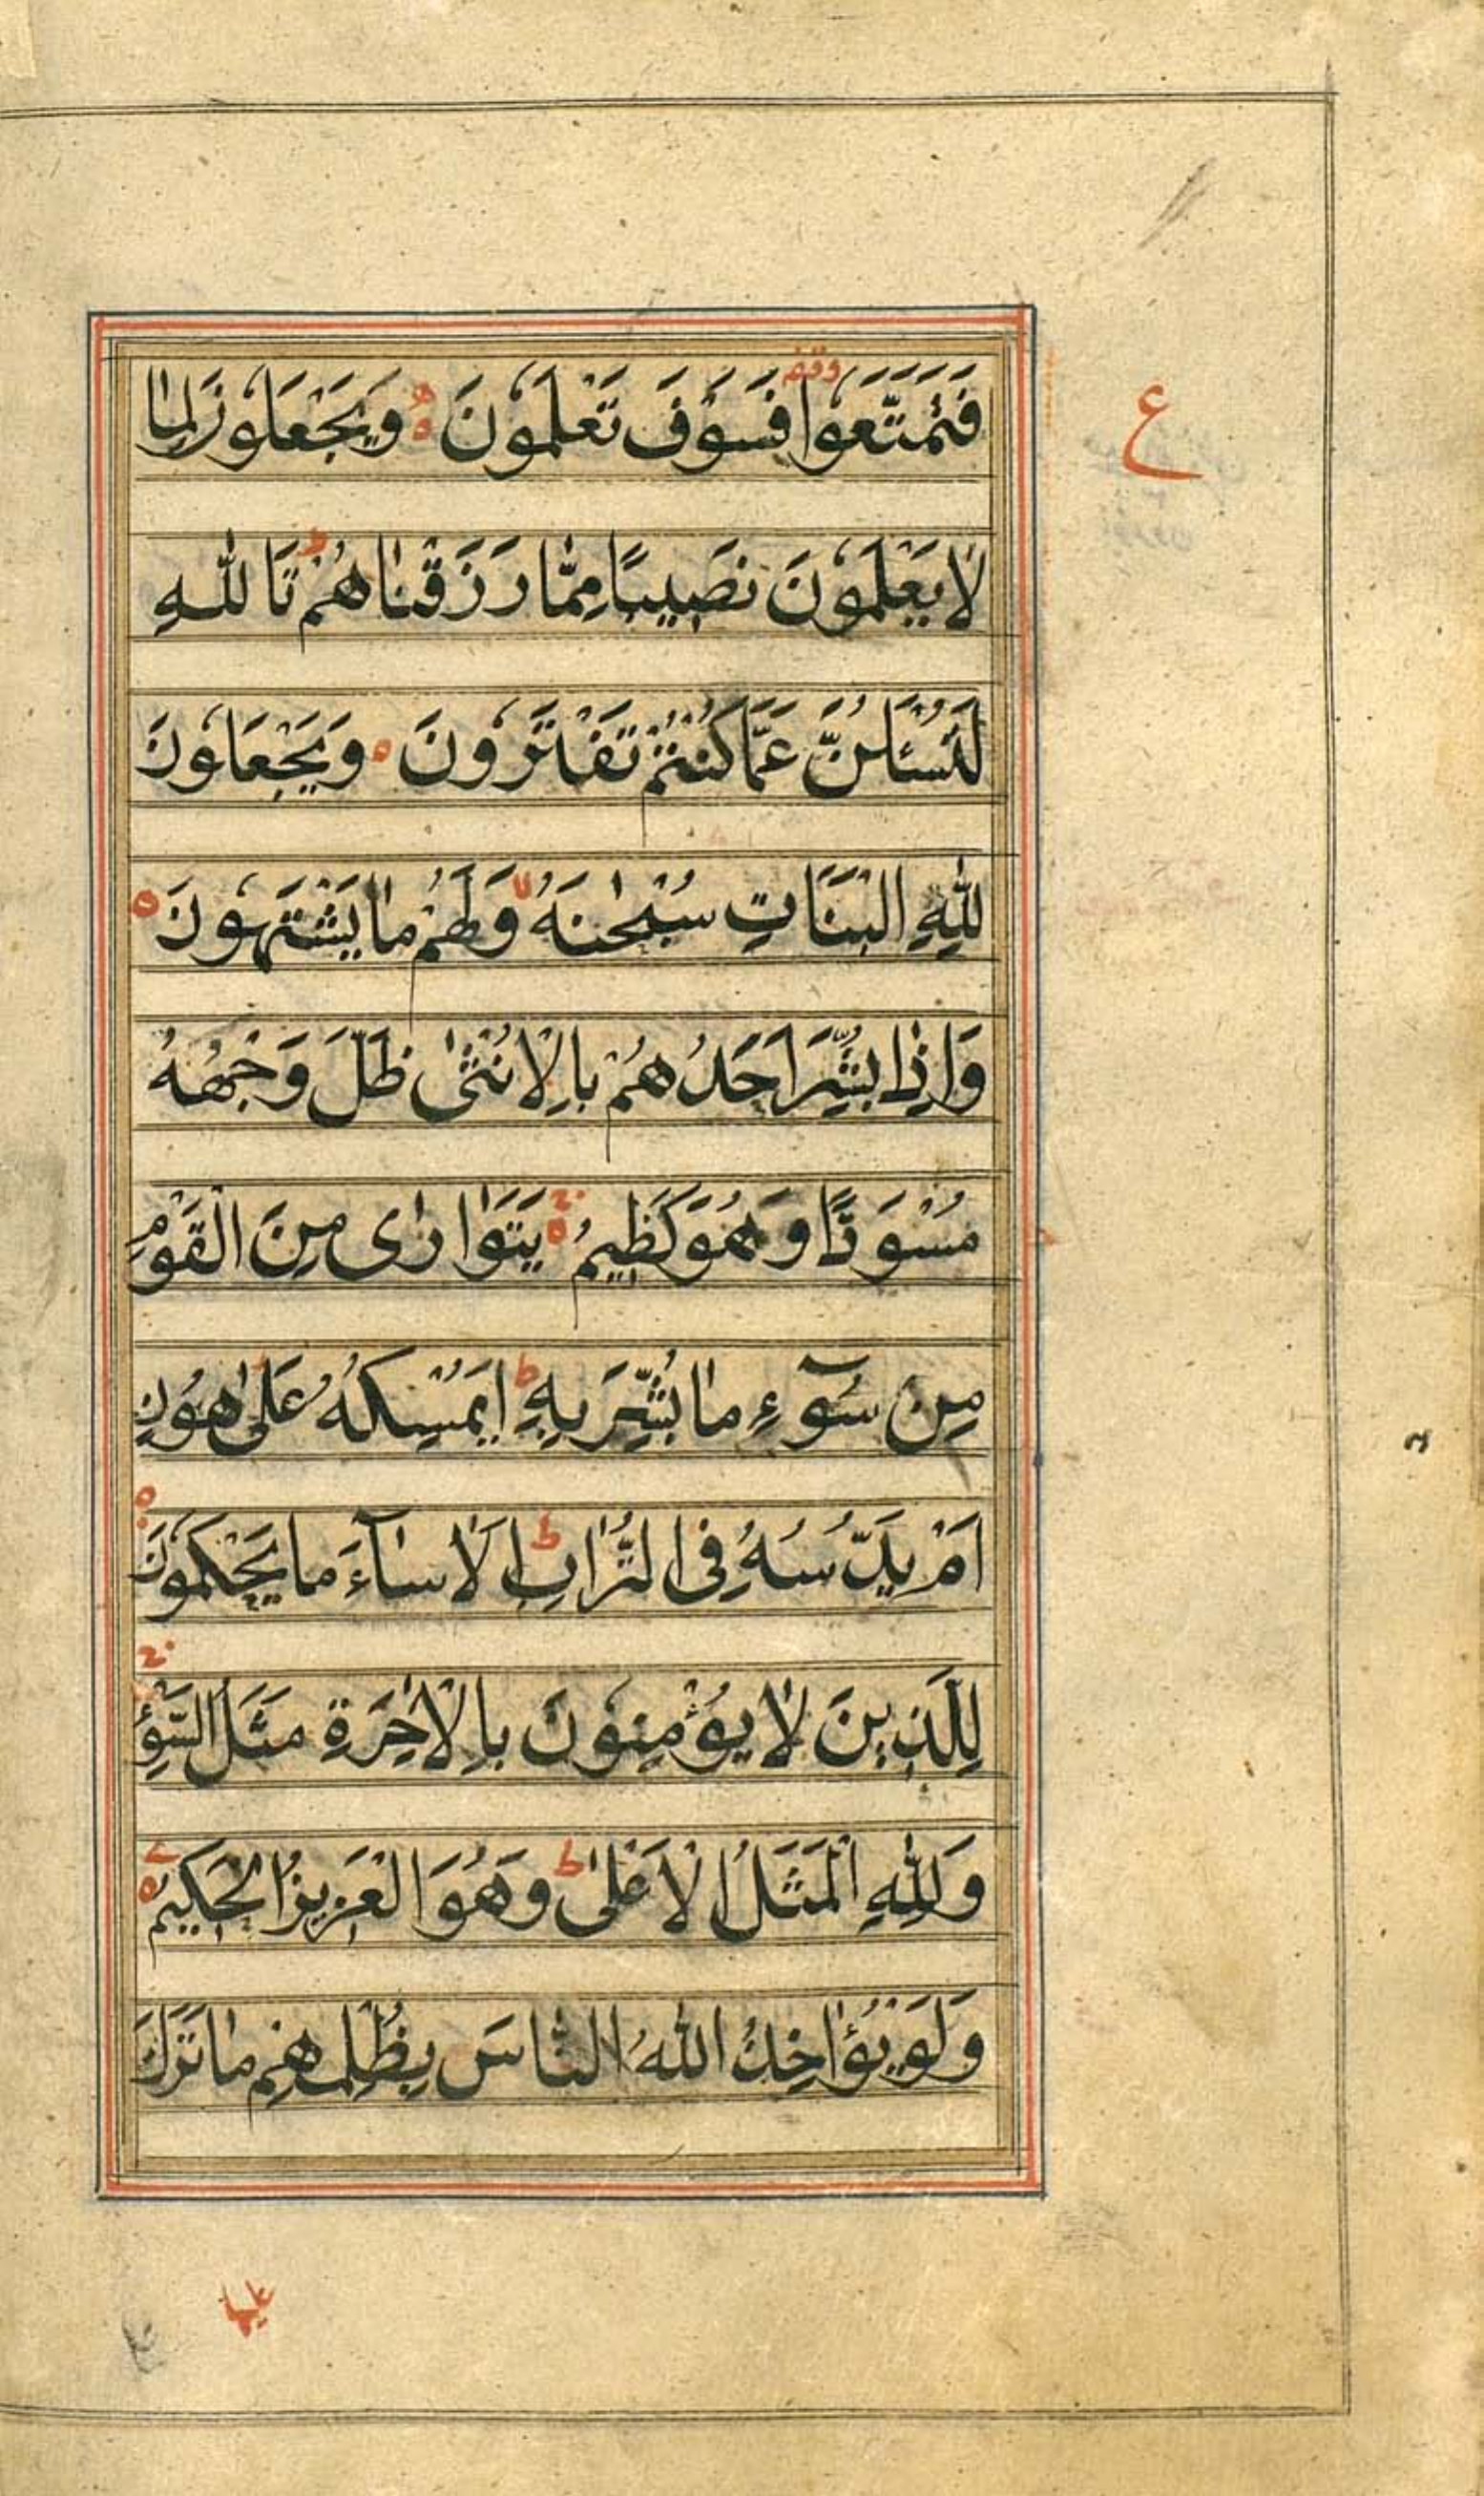 فَتَمَتَّعُوا فَسَوْفَ تَعْلَمُونَ وَيَجْعَلُونَ لِمَا
لَا يَعْلَمُونَ نَصِيبًا مِمَّا رَزَقْنَاهُمْ تَاللّٰهِ
لَتُسْئَلُنَّ عَمَّا كُنْتُمْ تَفْتَرُونَ وَيَجْعَلُونَ
لِلّٰهِ الْبَنَاتِ سُبْحٰنَهُ وَلَهُمْ مَا يَشْتَهُونَ
وَاِذَا بُشِّرَ اَحَدُهُمْ بِالْاُنْثٰى ظَلَّ وَجْهُهُ
مُسْوَدًّا وَهُوَ كَظِيمٌ يَتَوَارٰى مِنَ الْقَوْمِ
مِنْ سُوٓءِ مَا بُشِّرَ بِهِ اَيُمْسِكُهُ عَلٰى هُونٍ
اَمْ يَدُسُّهُ فِى التُّرَابِ اَلَا سَآءَ مَا يَحْكُمُونَ
لِلَّذِينَ لَا يُؤْمِنُونَ بِالْاٰخِرَةِ مَثَلُ السَّوْءِ
وَلِلّٰهِ الْمَثَلُ الْاَعْلٰى وَهُوَ الْعَزِيزُ الْحَكِيمُ
وَلَوْ يُؤَاخِذُ اللّٰهُ النَّاسَ بِظُلْمِهِمْ مَا تَرَكَ
ع